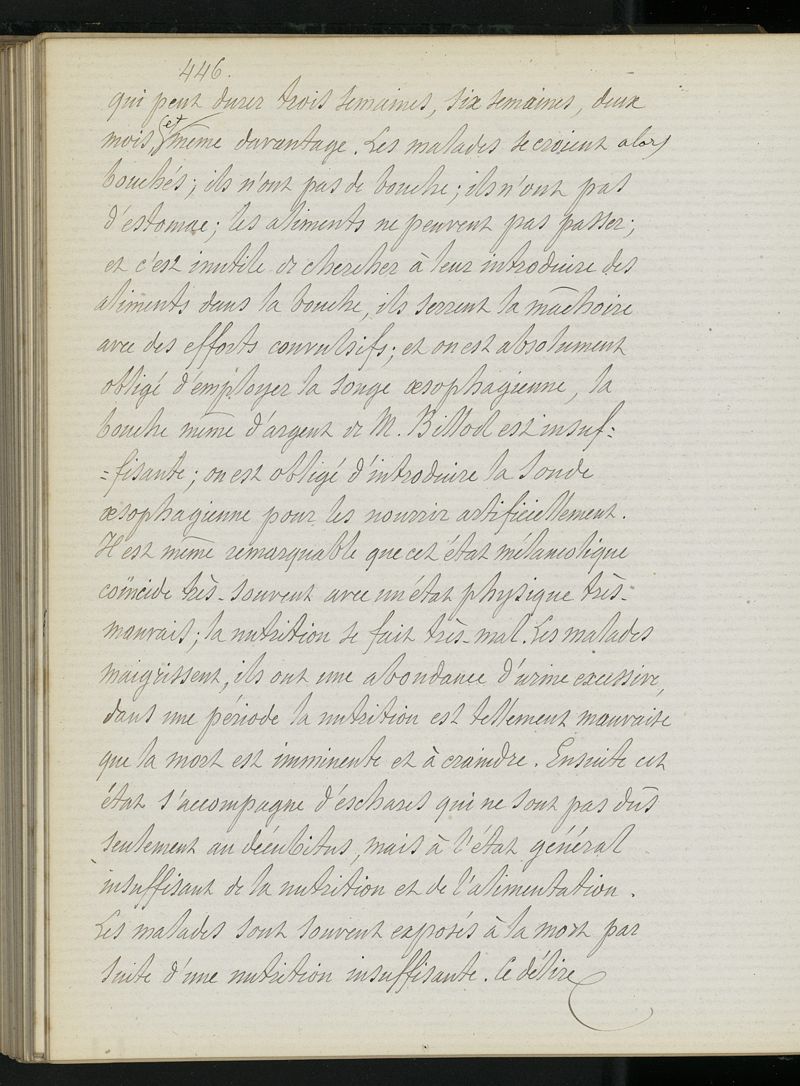 446.
qui peut durer trois semaines, six semaines, deux
mois, (et même davantage. Les malades se croient alors
bouchés; ils n'ont pas de bouche; ils n'ont pas
d'estomac; les aliments ne peuvent pas passer;
et c'est inutile de chercher à leur introduire des
aliments dans la bouche, ils serrent la mâchoire
avec des efforts convulsifs; et on est absolument
obligé d'employer la songe œsophagienne, la
bouche même d'argent de M. Billod est insuf=
=fisante; on est obligé d'introduire la sonde
œsophagienne pour les nourrir artificiellement.
Il est même remarquable que cet état mélancolique
coïncide très-souvent avec un état physique très-
mauvais; la nutrition se fait très-mal. Les malades
maigrissent, ils ont une abondance d'urine excessive,
dans une période la nutrition est tellement mauvaise
que la mort est imminente et à craindre. Ensuite cet
état s'accompagne d'eschares qui ne sont pas dûs
seulement au décubitus, mais à l'état général
insuffisant de la nutrition et de l'alimentation.
Les malades sont souvent exposés à la mort par
suite d'une nutrition insuffisante. Ce délire